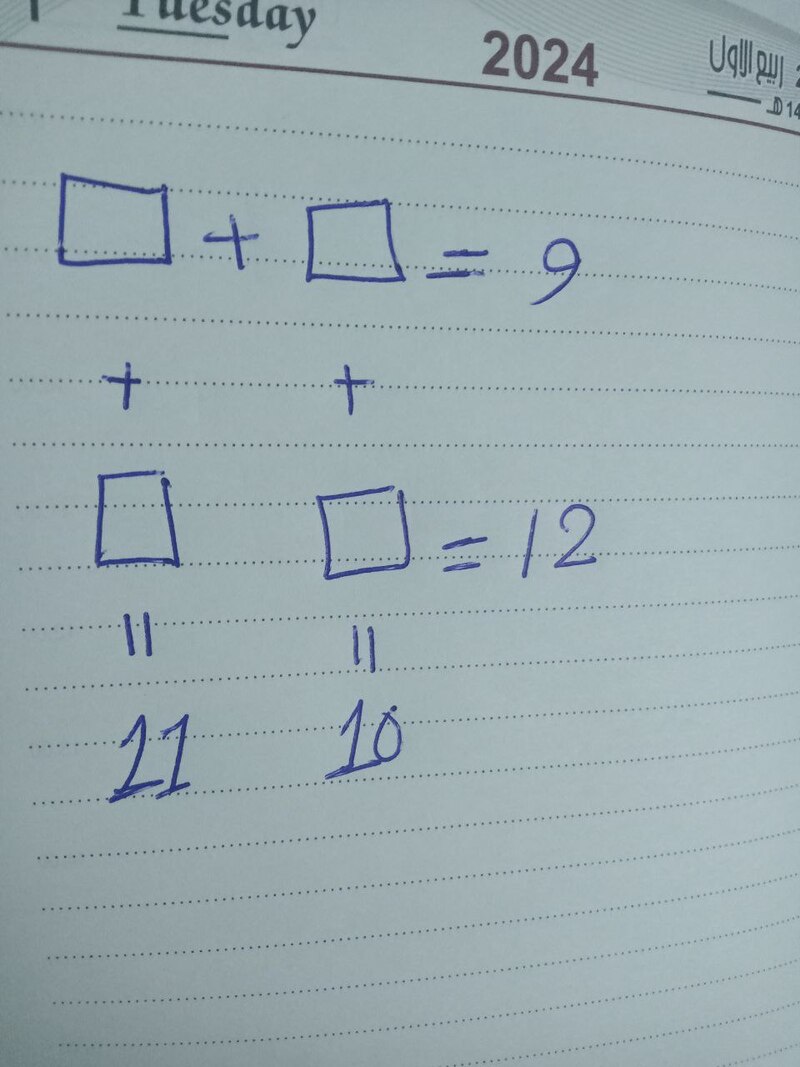 Tuesday
2024
ربيع الأول
□ + □ = 9
+ +
□ □ = 12
= =
11 10